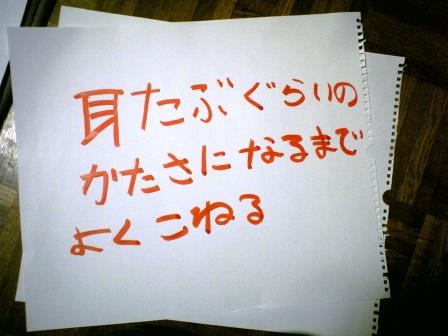 耳たぶぐらいの
かたさになるまで
よくこねる